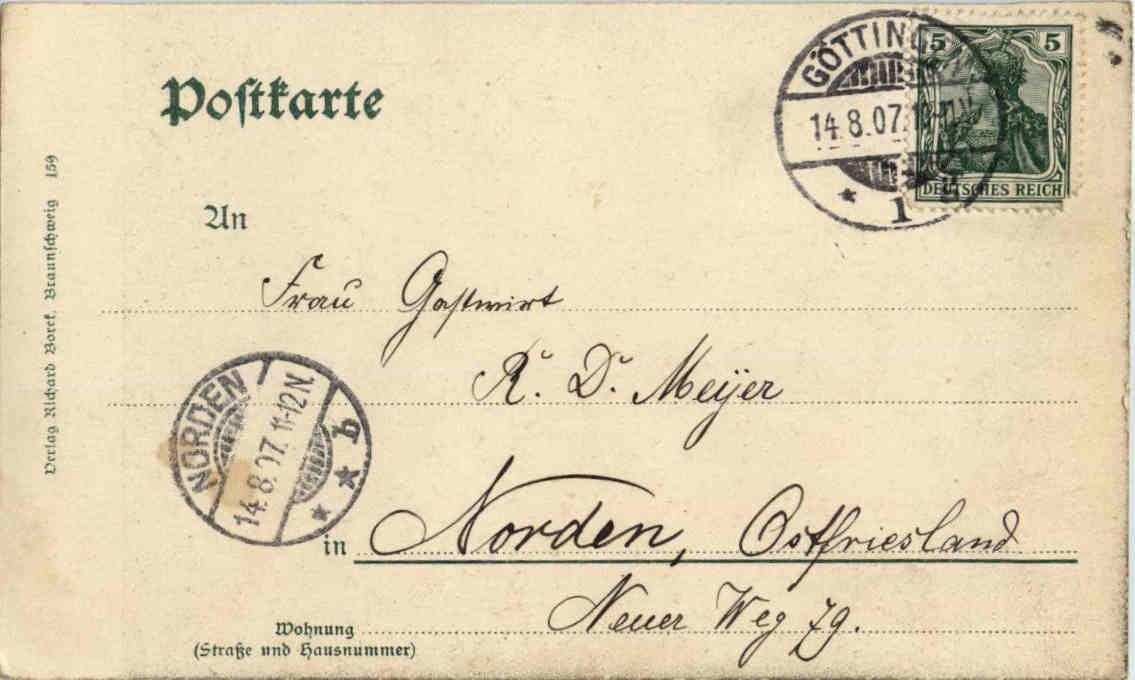 Postkarte
GÖTTINGEN
14.8.07. 10-11V.
* 1 d
5 5
DEUTSCHES REICH
An
Frau Gastwirt
R. D. Meyer
NORDEN
14.8.07. 11-12N.
* * b
in Norden, Ostfriesland
Neuer Weg 79.
Wohnung
(Straße und Hausnummer)
Verlag Richard Borek, Braunschweig 159